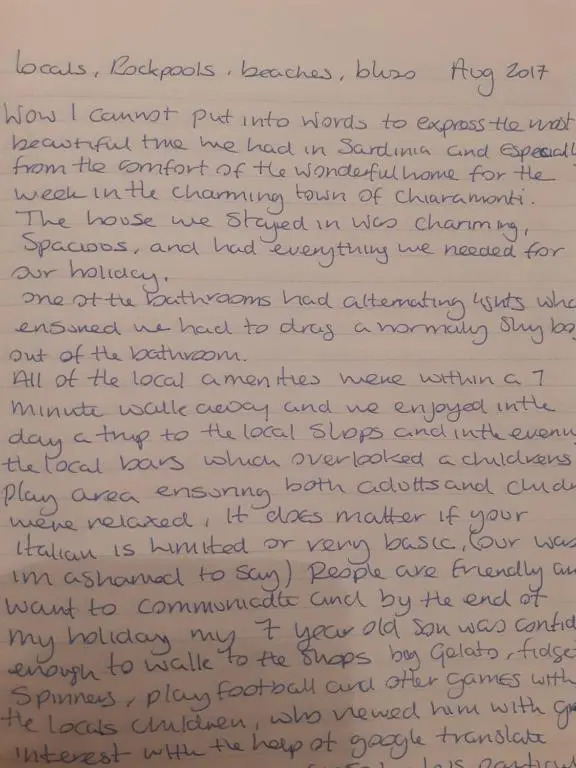 locals, Rockpools, beaches, Aug 2017
Wow I cannot put into words to express the most
beautiful time we had in Sardinia and Especiall
from the comfort of the wonderful home for the
week in the charming town of Chiaramonti.
The house we stayed in was charming,
Spacioos, and had everything we needed for
our holiday.
one of the bathrooms had alternating lights
ensured we had to drag a normally shy bo
out of the bathroom.
All of the local amenities were within a 7
minute walk away and we enjoyed in the
day a trip to the local Shops and in the evenin
the local bars which overlooked a childrens
play area ensuring both adults and
were relaxed, It does matter if your
Italian is limited or very basic, (our was
im ashamed to say) People are friendly an
want to communicate and by the end of
my holiday my 7 year old Son was confid
enough to walk to the shops buy Gelato, fidge
Spinners, play football and other games with
the locals children, who viewed him with
interest with the help of google translate